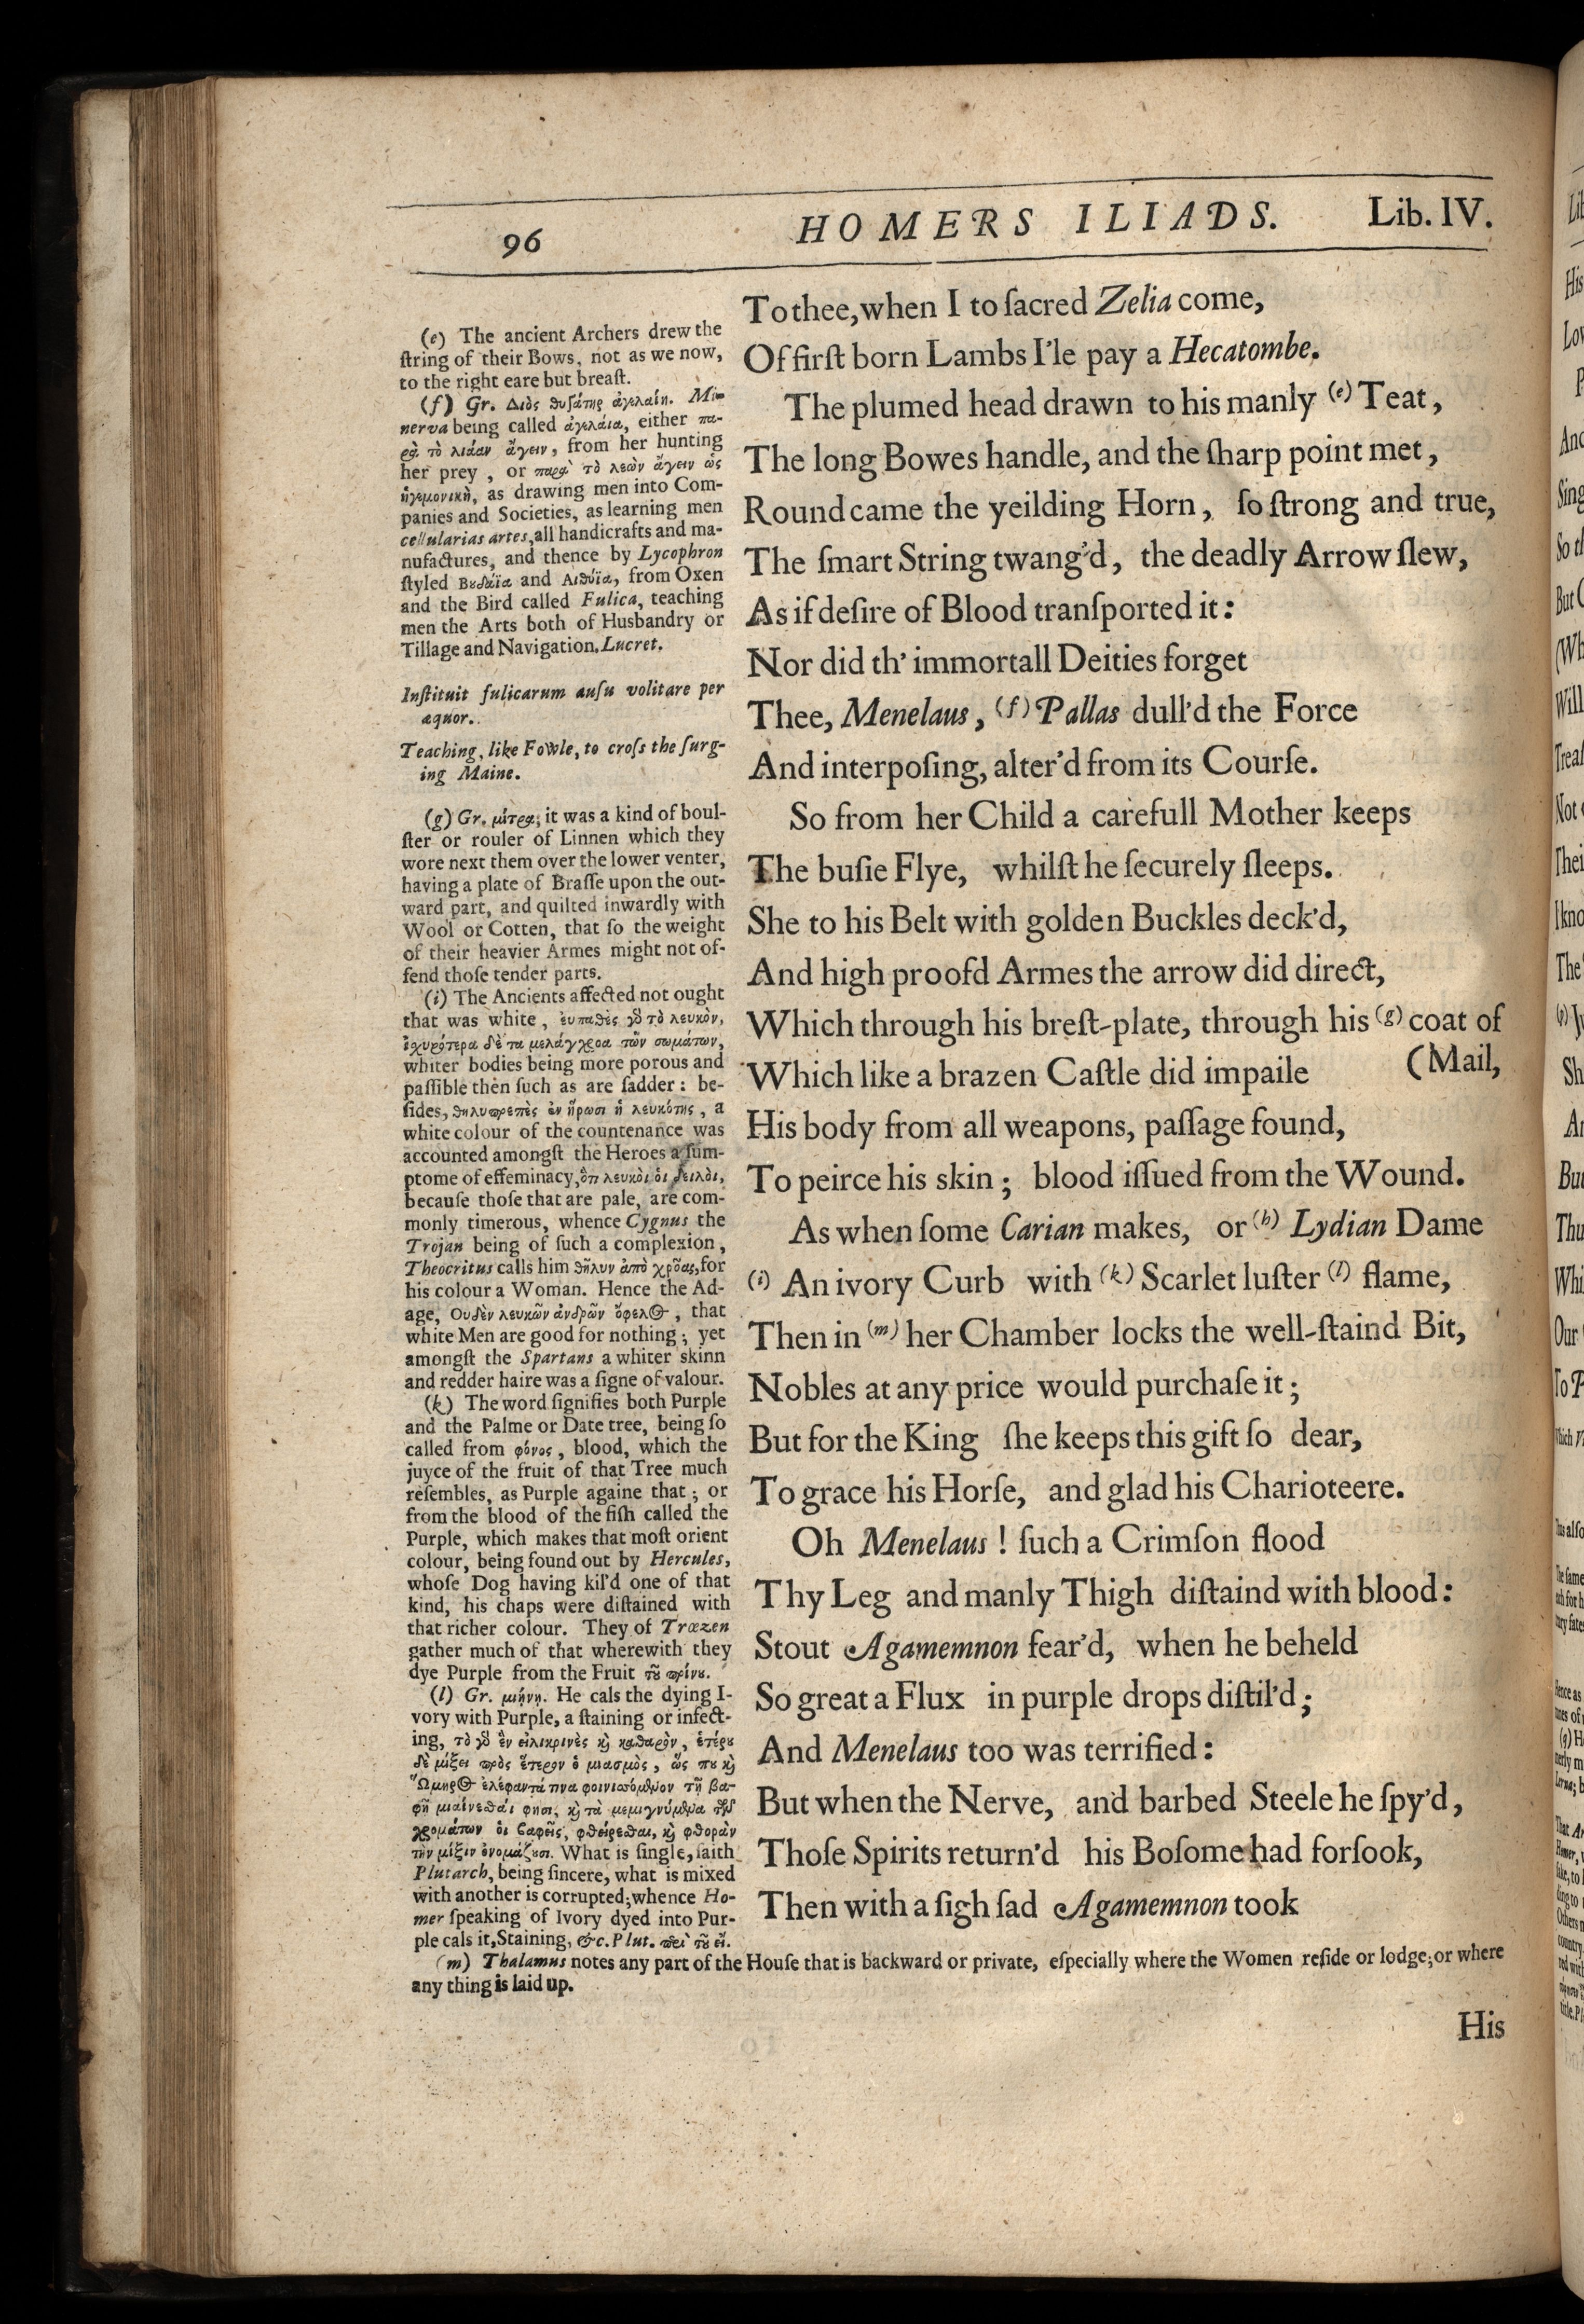 96 HOMERS ILIADS. Lib. IV.
To thee, when I to ſacred Zelia come,
Of firſt born Lambs I'le pay a Hecatombe.
The plumed head drawn to his manly (e) Teat,
The long Bowes handle, and the ſharp point met,
Round came the yeilding Horn, ſo ſtrong and true,
The ſmart String twang'd, the deadly Arrow flew,
As if deſire of Blood tranſported it:
Nor did th' immortall Deities forget
Thee, Menelaus, (f) Pallas dull'd the Force
And interpoſing, alter'd from its Courſe.
So from her Child a carefull Mother keeps
The buſie Flye, whilſt he ſecurely ſleeps.
She to his Belt with golden Buckles deck'd,
And high proofd Armes the arrow did direct,
Which through his breſt-plate, through his (g) coat of
(Mail,
Which like a brazen Caſtle did impaile
His body from all weapons, paſſage found,
To peirce his skin; blood iſſued from the Wound.
As when ſome Carian makes, or (h) Lydian Dame
(i) An ivory Curb with (k) Scarlet luſter (l) flame,
Then in (m) her Chamber locks the well-ſtaind Bit,
Nobles at any price would purchaſe it;
But for the King ſhe keeps this gift ſo dear,
To grace his Horſe, and glad his Charioteere.
Oh Menelaus! ſuch a Crimſon flood
Thy Leg and manly Thigh diſtaind with blood:
Stout Agamemnon fear'd, when he beheld
So great a Flux in purple drops diſtil'd;
And Menelaus too was terrified:
But when the Nerve, and barbed Steele he ſpy'd,
Thoſe Spirits return'd his Boſome had forſook,
Then with a ſigh ſad Agamemnon took
(e) The ancient Archers drew the
ſtring of their Bows, not as we now,
to the right eare but breaſt.
(f) Gr. Διὸς θυγάτηρ ἀγελαίη. Mi-
nerva being called ἀγελάια, either πα-
ρὰ τὸ λιάαν ἄγειν, from her hunting
her prey, or παρὰ τὸ λεὼν ἄγειν ὡς
ἡγεμονικὴ, as drawing men into Com-
panies and Societies, as learning men
cellularias artes, all handicrafts and ma-
nufactures, and thence by Lycophron
ſtyled Βȣδάϊα and Αιθύϊα, from Oxen
and the Bird called Fulica, teaching
men the Arts both of Husbandry or
Tillage and Navigation. Lucret.
Inſtituit fulicarum auſu volitare per
æquor.
Teaching, like Fowle, to croſs the ſurg-
ing Maine.
(g) Gr. μίτρα; it was a kind of boul-
ſter or rouler of Linnen which they
wore next them over the lower venter,
having a plate of Braſſe upon the out-
ward part, and quilted inwardly with
Wool or Cotten, that ſo the weight
of their heavier Armes might not of-
fend thoſe tender parts.
(i) The Ancients affected not ought
that was white, ἐυπαθὲς γὸ τὸ λευκὸν,
ἰχυρότερα δὲ τα μελάγχροα τῶν σωμάτων,
whiter bodies being more porous and
paſſible then ſuch as are ſadder: be-
ſides, θηλυπρεπὲς ἐν ἥρωσι ἡ λευκότης, a
white colour of the countenance was
accounted amongſt the Heroes a ſum-
ptome of effeminacy, ὅτι λευκὸι ὁι δειλὸι,
becauſe thoſe that are pale, are com-
monly timerous, whence Cygnus the
Trojan being of ſuch a complexion,
Theocritus calls him θῆλυν ἀπὸ χρόας, for
his colour a Woman. Hence the Ad-
age, Ουδὲν λευκῶν ἀνδρῶν ὄφελος, that
white Men are good for nothing; yet
amongſt the Spartans a whiter skinn
and redder haire was a ſigne of valour.
(k) The word ſignifies both Purple
and the Palme or Date tree, being ſo
called from φόνος, blood, which the
juyce of the fruit of that Tree much
reſembles, as Purple againe that; or
from the blood of the fiſh called the
Purple, which makes that moſt orient
colour, being found out by Hercules,
whoſe Dog having kil'd one of that
kind, his chaps were diſtained with
that richer colour. They of Trœzen
gather much of that wherewith they
dye Purple from the Fruit τȣ͂ πρίνȣ.
(l) Gr. μιήνῃ. He cals the dying I-
vory with Purple, a ſtaining or infect-
ing, τὸ γὸ ἓν ειλικρινὲς ϗ καθαρὸν, ἑτέρȣ
δὲ μίξει πρὸς ἕτερον ὁ μιασμὸς, ὥς πȣ ϗ
Ὅμηρος ἐλέφαντά τινα φοινισσόμενον τῇ βα-
φῇ μιαίνεσθαί φησι, ϗ τὰ μεμιγνύμενα τῶν
χρομάτων ὁι βαφεῖς, φθείρεσθαι, ϗ φθορὰν
τὴν μίξιν ὀνομάζȣσι. What is ſingle, ſaith
Plutarch, being ſincere, what is mixed
with another is corrupted; whence Ho-
mer ſpeaking of Ivory dyed into Pur-
ple cals it, Staining, &c. Plut. περὶ τȣ͂ εἶ.
(m) Thalamus notes any part of the Houſe that is backward or private, eſpecially where the Women reſide or lodge; or where
any thing is laid up.
His